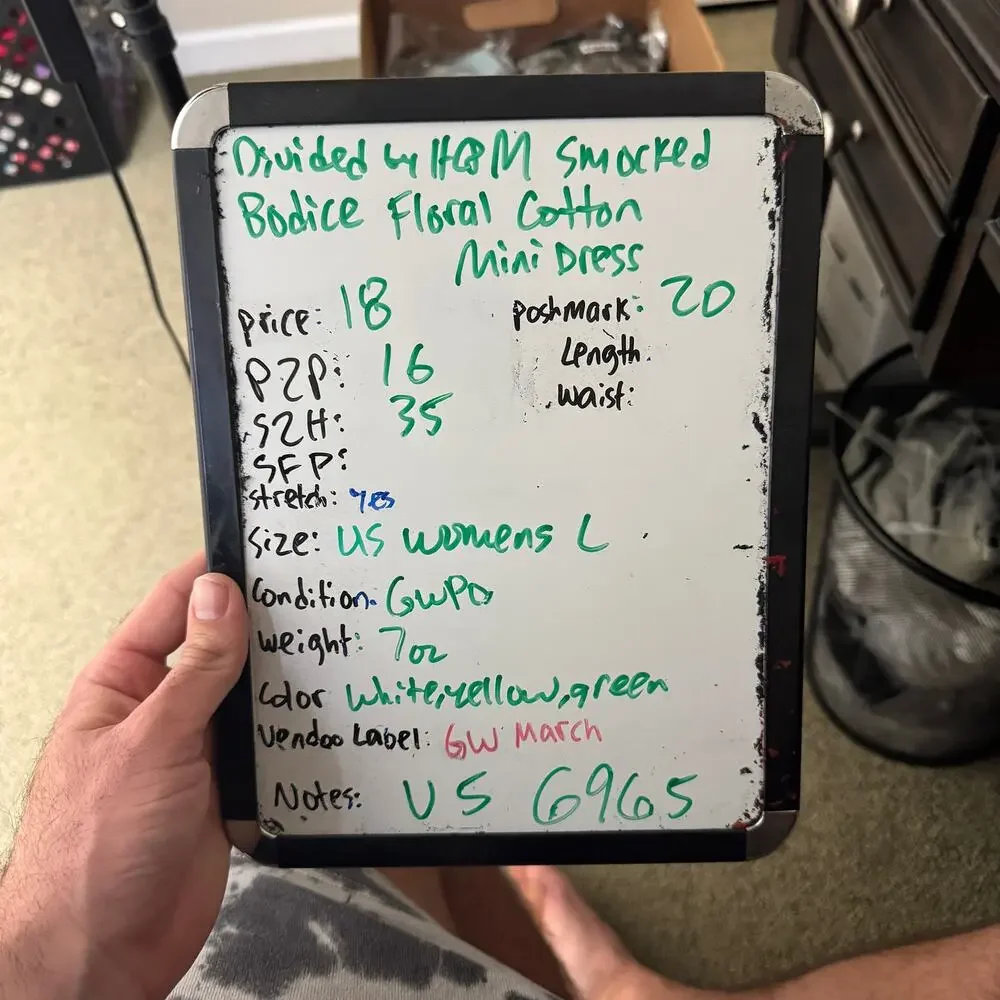 Divided by H&M Smocked
Bodice Floral Cotton
Mini Dress
price: 18
poshmark: 20
P2P: 16
Length:
S2H: 35
waist:
SFP:
stretch: yes
Size: US womens L
Condition: GWPO
weight: 7oz
Color white,yellow,green
Vendoo Label: GW March
Notes: US 6965